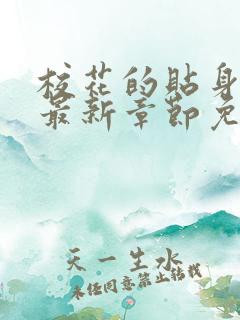 校花的贴身
最新章节免
天一生水
未经同意禁止转载